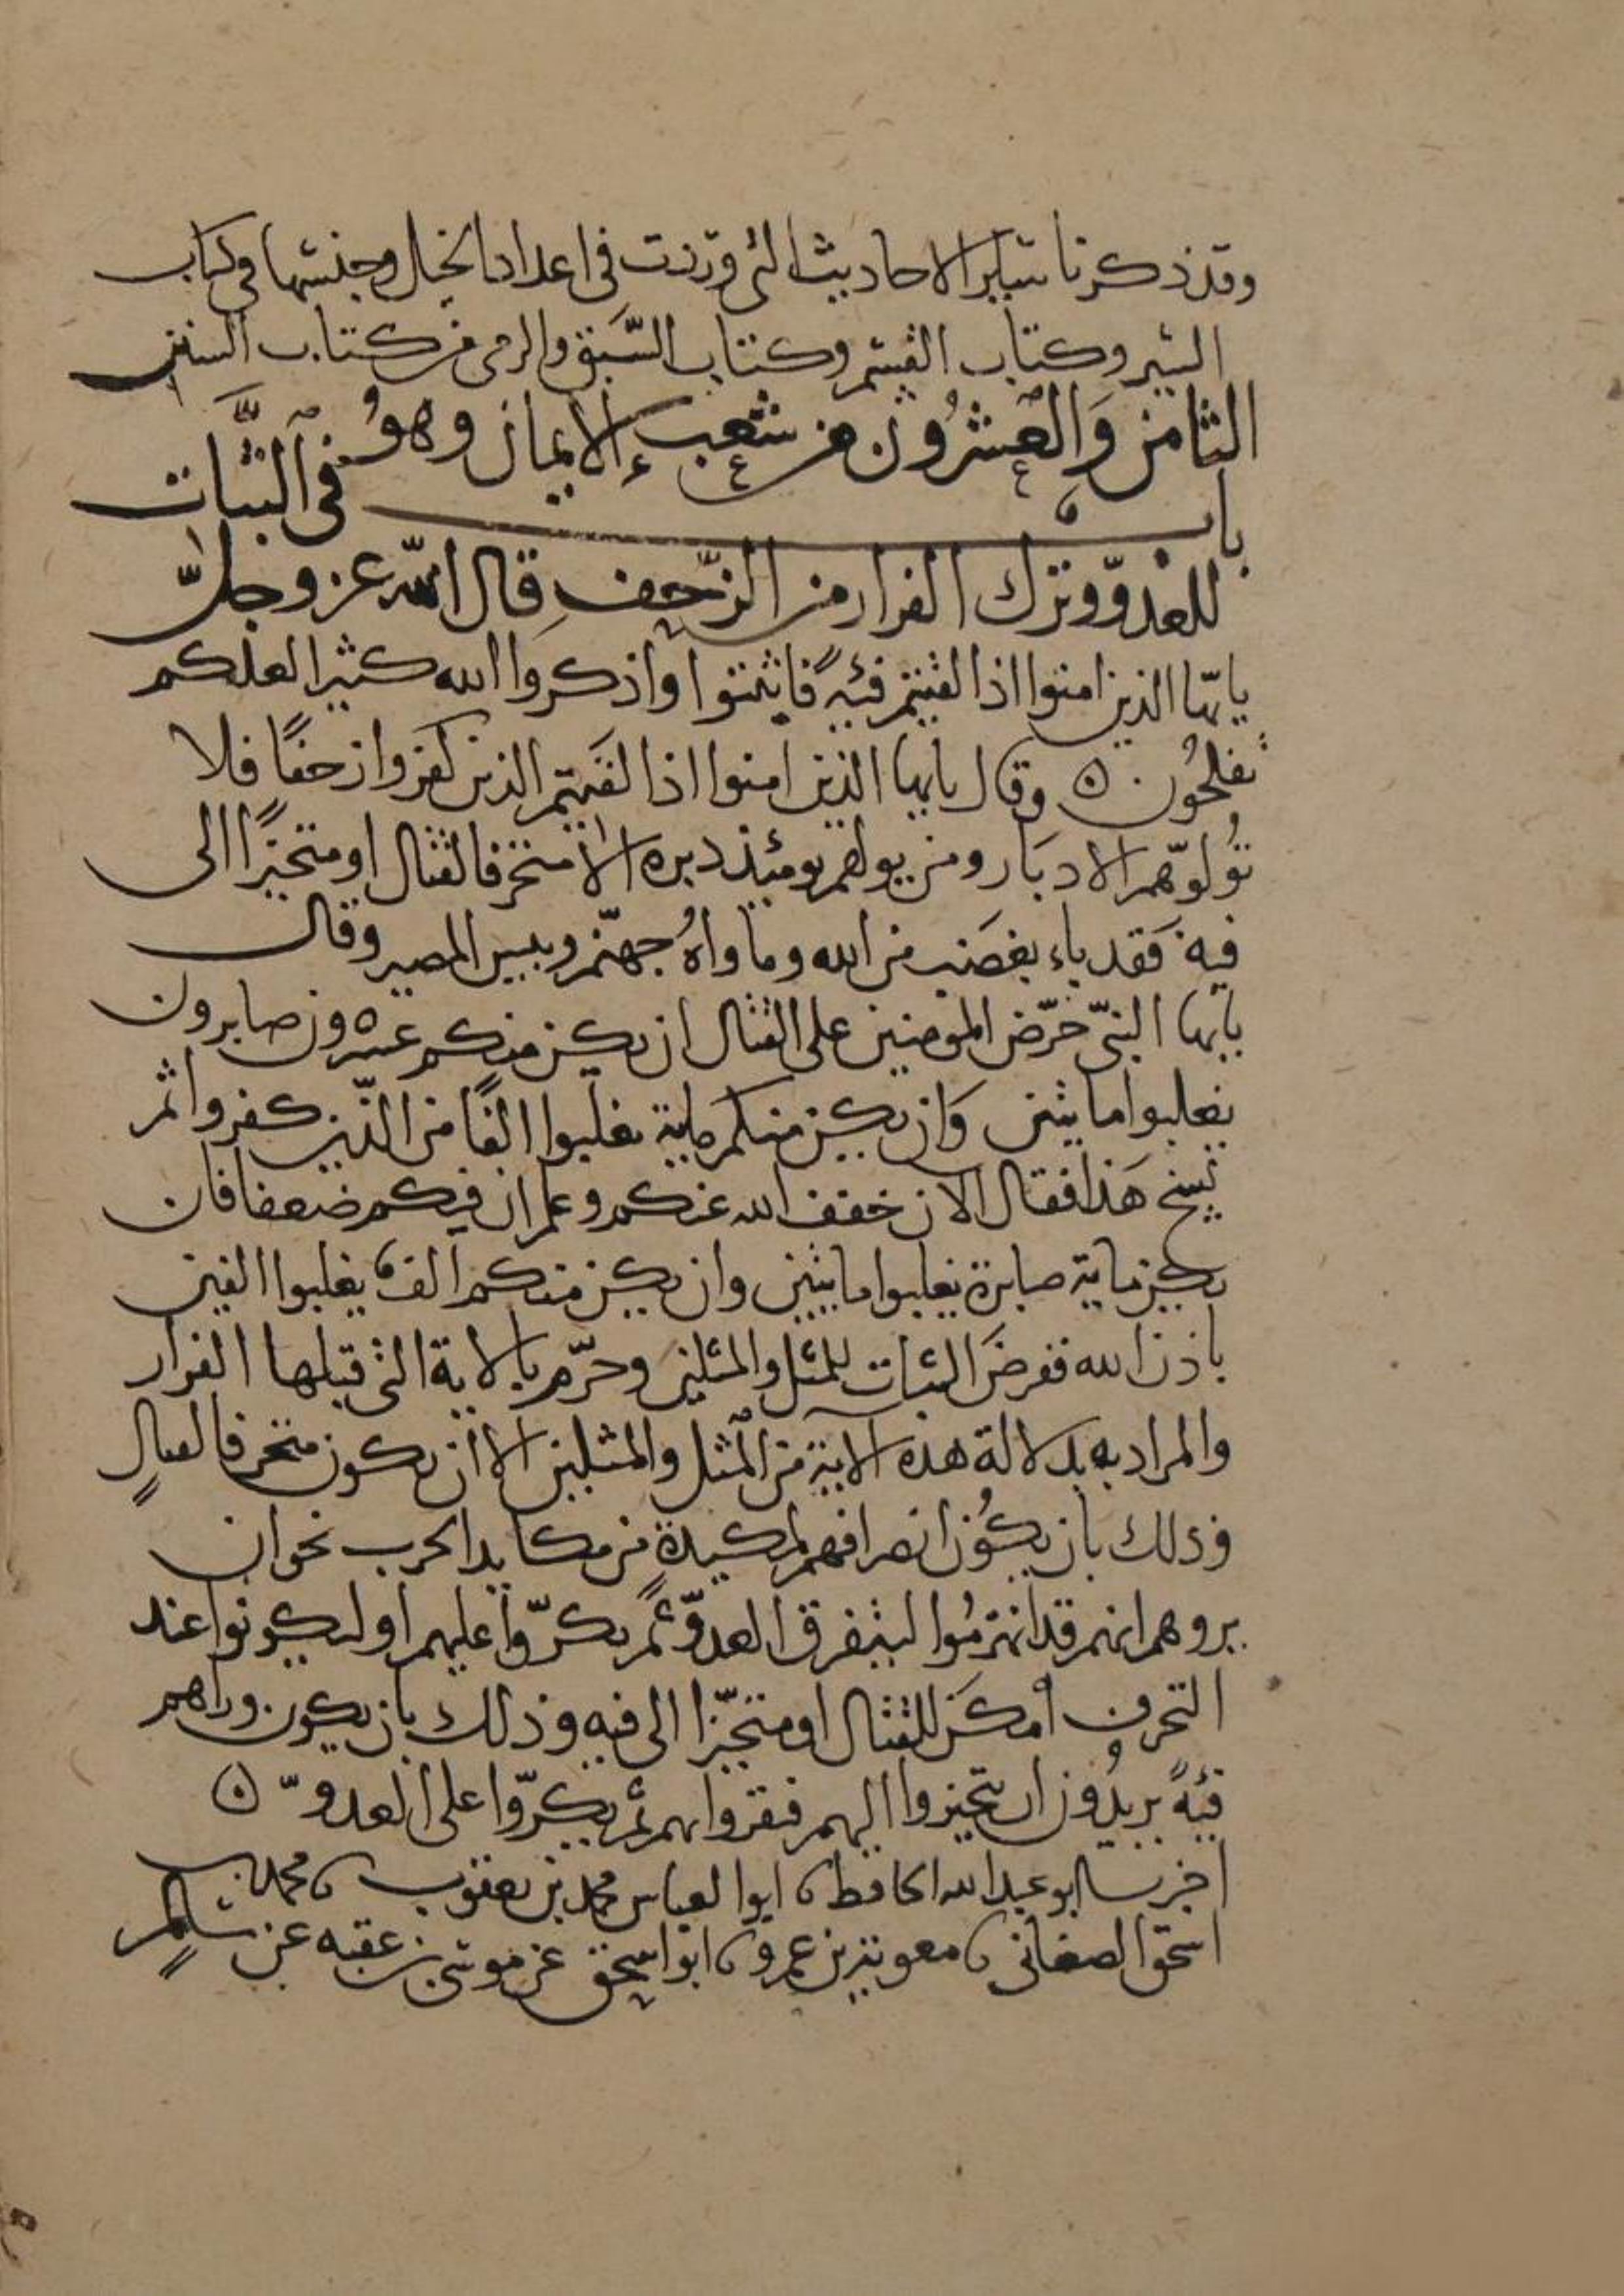 وقد ذكرنا سائر الاحاديث التي وردت في اعداد الخيل وحبسها في كتاب
السير وكتاب القسم وكتاب السبق والرمي من كتاب السنن
الثامن وَالعشرُون من شعب الايمان وهوُ
باب في الثبات
للعدوّ وترك الفرار من الزّحف قال الله عز وجلّ
يايّها الذين امنوا اذا لقيتم فئةً فاثبتوا واذكروا الله كثيرا لعلكم
تفلحُون ۞ وقال يايها الذين امنوا اذا لقيتم الذين كفروا زحفًا فلا
تُولوّهم الادبَار ومن يولهم يومئذ دبره الا متحرفا لقتال او متحيّزًا الى
فية فَقد باء بغضَب من الله وماواهُ جهنّم وبيس المصير وقال
يايّها النبيّ حَرّض المومنين على القتال ان يكن منكم عشرون صابرون
يغلبوا مايتين وَان يكن منكم ماية يغلبوا الفًا من الذّين كفروا ثم
نسخ هَذا فقال الان خفف الله عنكم وعلم ان فيكم ضعفا فان
يكن ماية صابرة يغلبوا مايتين وان يكن منكم الف يغلبوا الفين
باذن الله ففرضَ الثبات للمثل والمثلين وحرّم بالاية التي قبلها الفرار
والمراد به بدلالة هذه الاية من المثل والمثلين الا ان يكون متحرفا لقتالٍ
وذلك بان يكوُن انصرافهم لمكيدةٍ من مكايد الحرب نحو ان
يروهم انهم قد انهزمُوا ليتفرق العدوّ ثم يكرّوا عليهم او ليكونوا عند
التحرف أمكَن للقتال او متحيّزا الى فية وذلك بان يكون وراهم
فئةً يريدُون ان يتحيزوا اليهم فيقروا بهم ثم يكرّوا على العدوّ ۞
اخبرنا ابو عبد الله الحافظ نا ابوا لعباس محمد بن يعقوب نا محمد بن
اسحق الصغاني نا معوية بن عمرو نا ابوا سحق عن موسى بن عقبه عن سالم